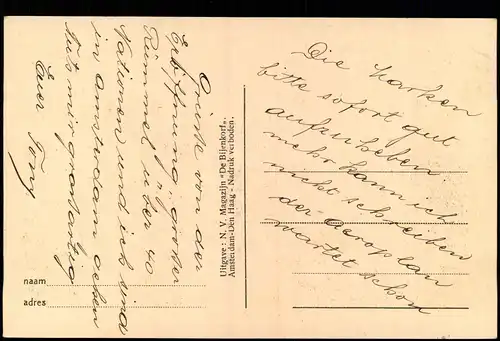 Grüsse von der
Eröffnung, grosser
Rummel, über 40
Nationen und ich sind
in Amsterdam
tuts mir grossartig
Euer Tony
Uitgave: N. V. Magazijn "De Bijenkorf",
Amsterdam-Den Haag - Nadruk verboden.
Die Karken
bitte sofort gut
aufzuheben.
mehr kann ich
nicht schreiben
der Aeroplan
wartet schon
naam
adres